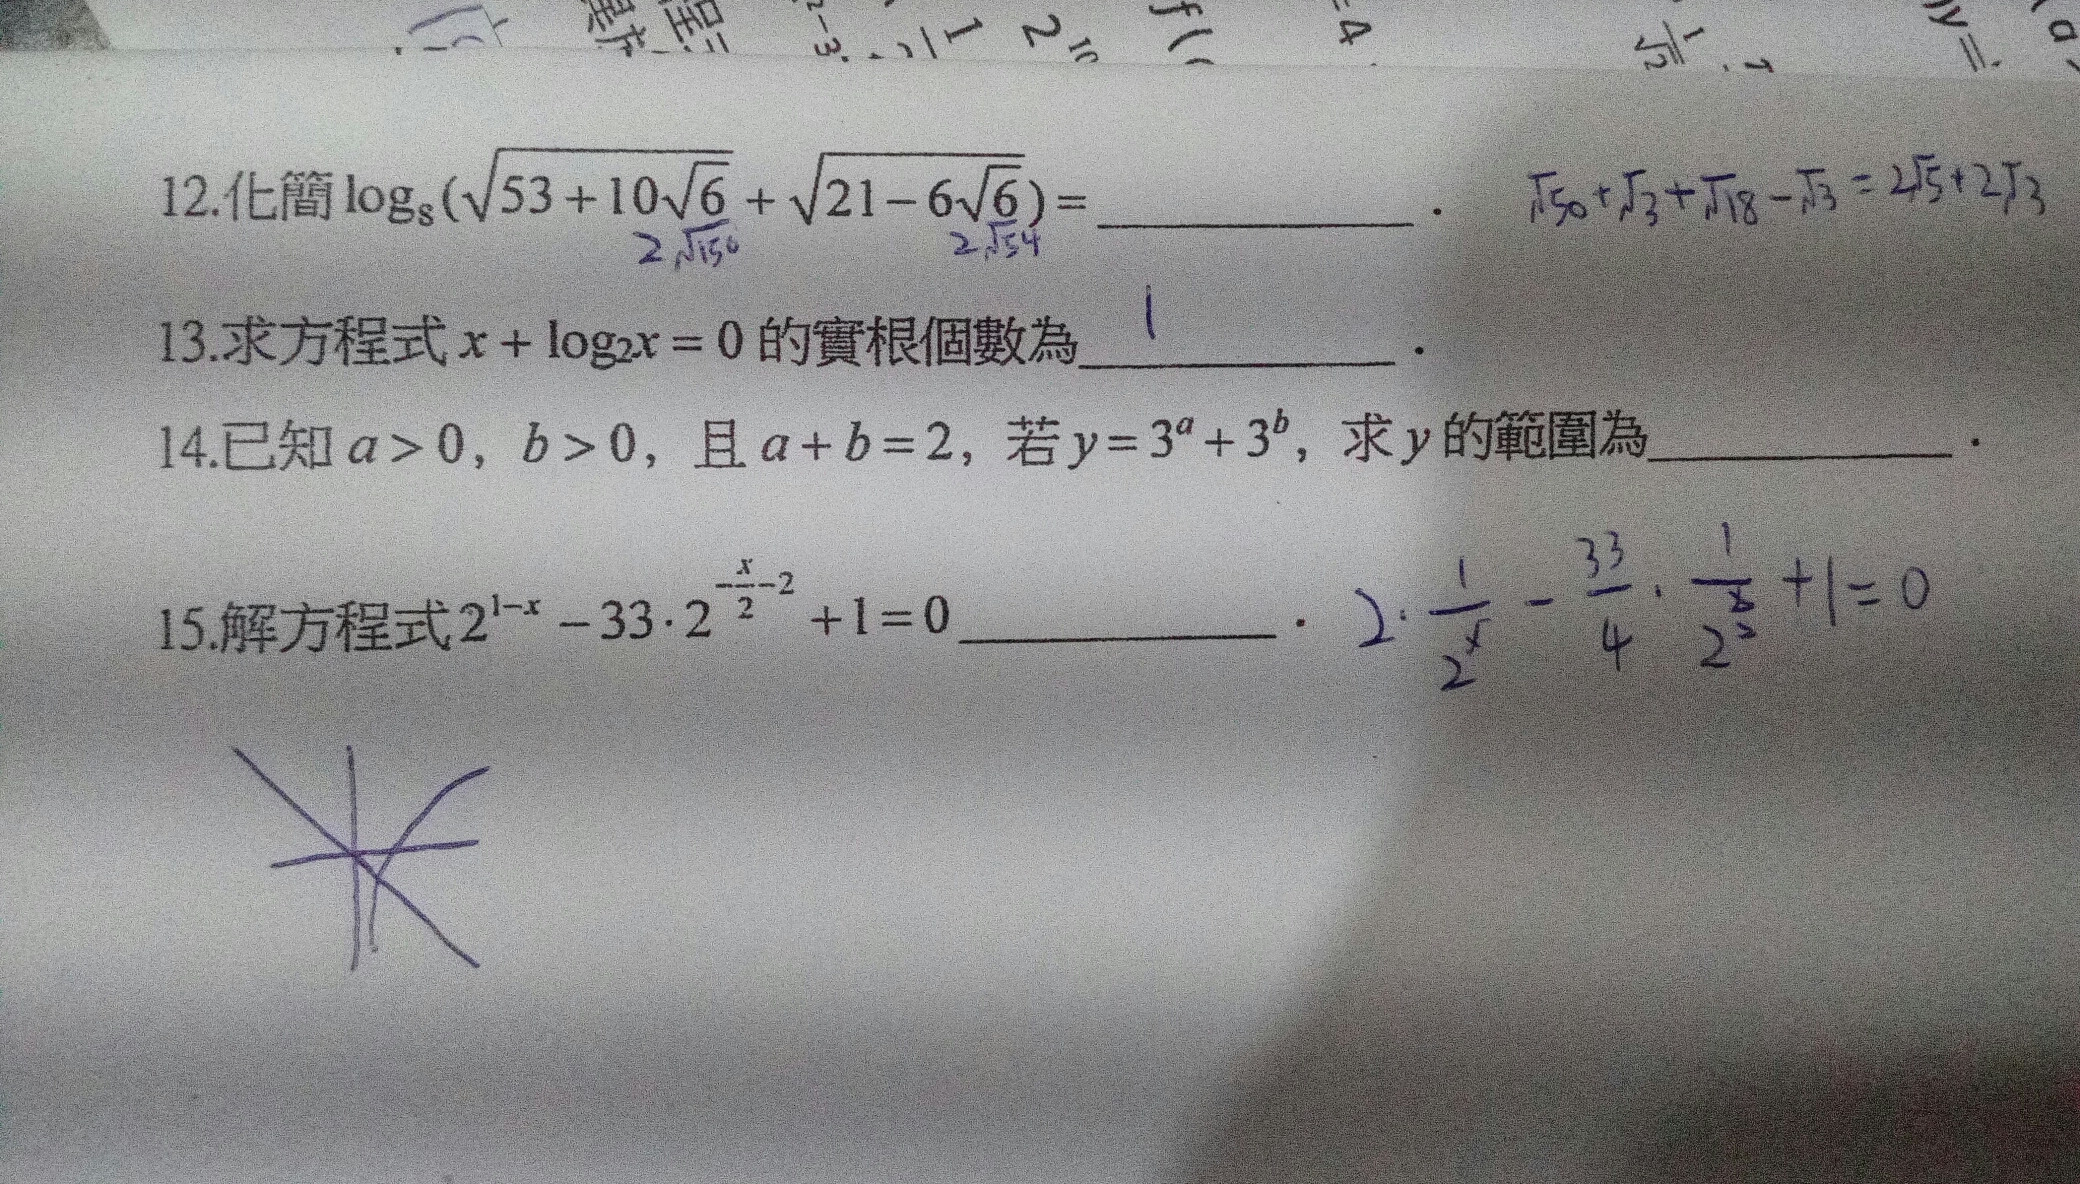 12.化簡 log₈(√(53+10√6) + √(21−6√6)) = ________ . √50+√3+√18−√3=2√5+2√3
2√150 2√54
13.求方程式 x + log₂x = 0 的實根個數為 1 .
14.已知 a>0, b>0, 且 a+b=2, 若 y=3ᵃ+3ᵇ, 求 y 的範圍為________ .
15.解方程式 2^(1−x) − 33·2^(−x/2−2) + 1=0________ . 2·1/2^x − 33/4 · 1/2^(x/2) +1=0